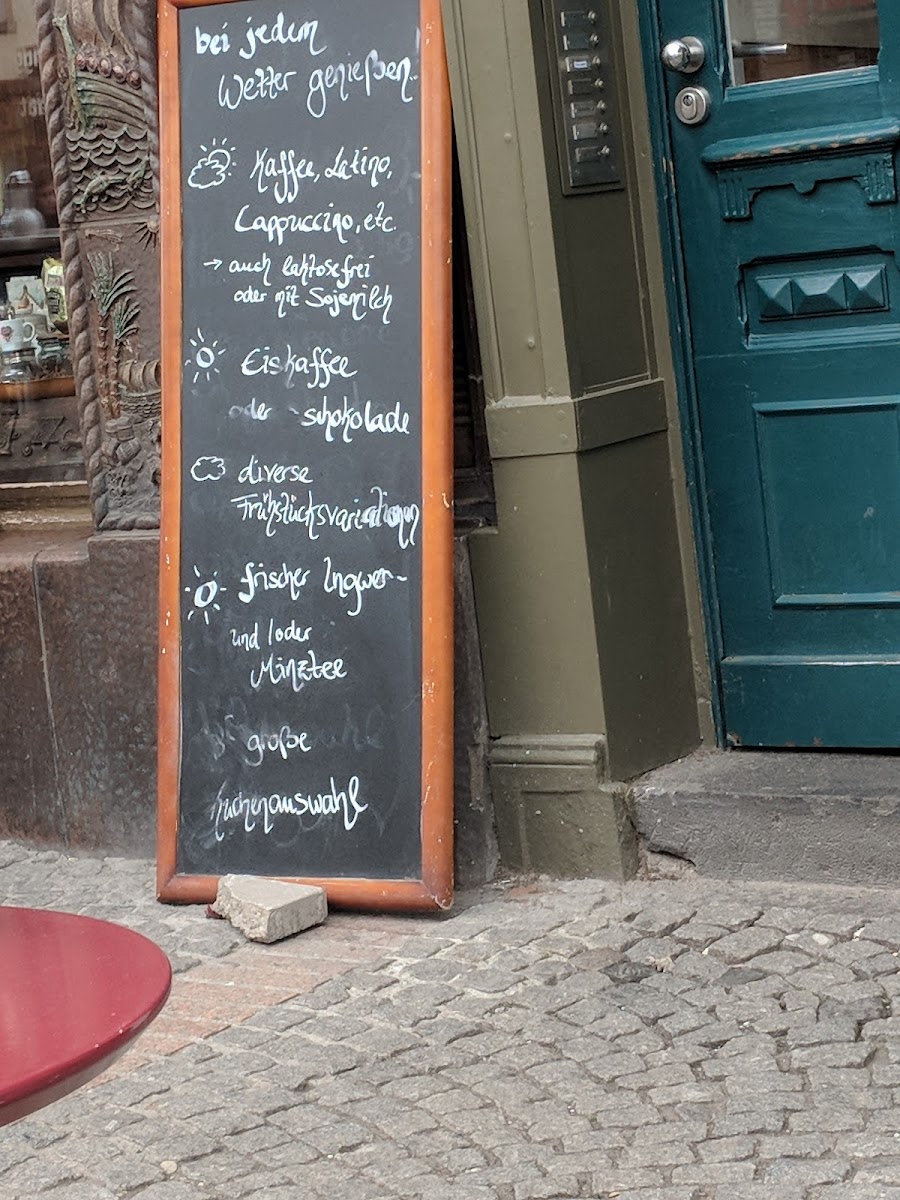 bei jedem
Wetter genießen...
Kaffee, Latino,
Cappuccino, etc.
→ auch laktosefrei
oder mit Sojamilch
Eiskaffee
oder -schokolade
diverse
Frühstücksvariationen
frischer Ingwer-
und/oder
Minztee
große
Kuchenauswahl